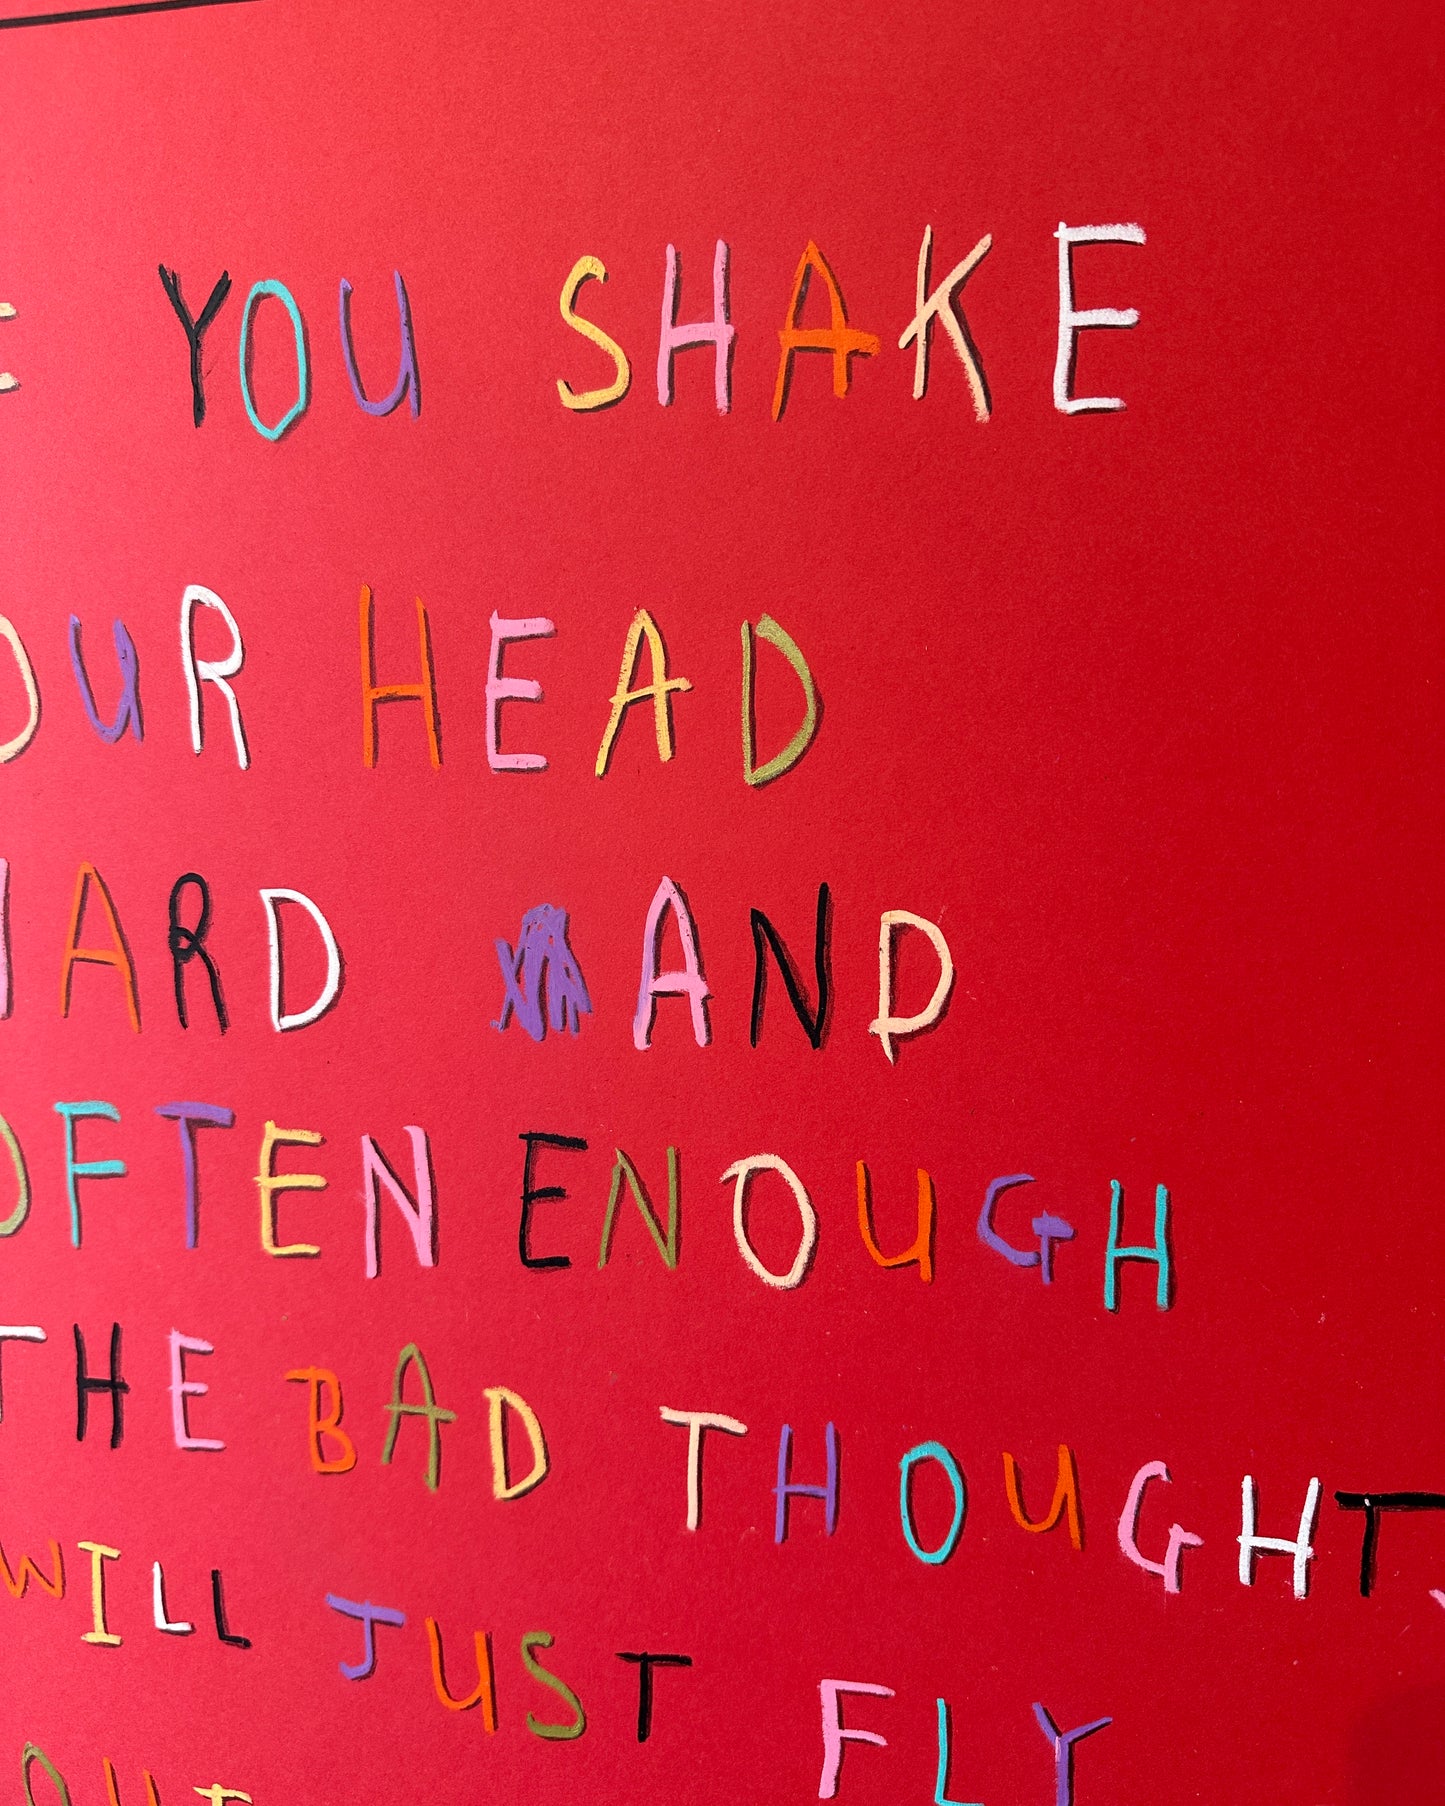 YOU SHAKE
OUR HEAD
HARD AND
OFTEN ENOUGH
THE BAD THOUGHT
WILL JUST FLY
OUT